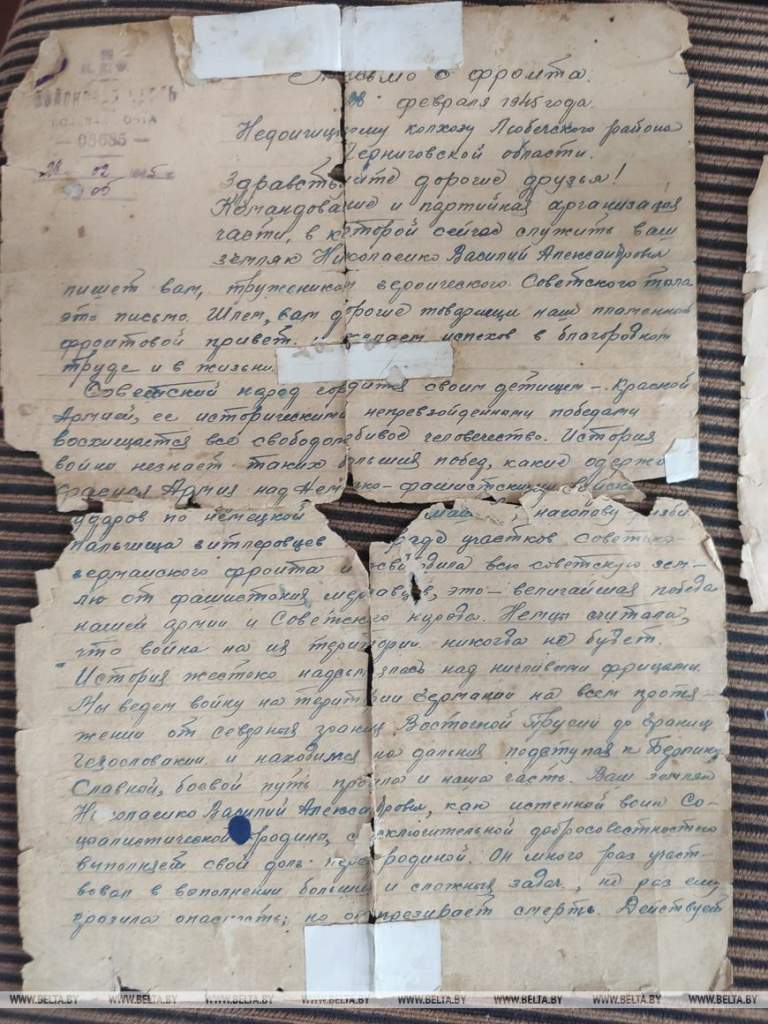 Н.К.О.
ВОЙСКОВАЯ ЧАСТЬ
ПОЛЕВАЯ ПОЧТА
— 08685 —
28 02 1945 г
Письмо с фронта.
28 февраля 1945 года.
колхозу Любечского района
Черниговской области.
Здравствуйте дорогие друзья!
Командование и партийная организация
части, в которой сейчас служить ваш
земляк Николаенко Василий Александровья
пишет вам, труженикам героического Советского тыла
это письмо. Шлем, вам дорогие товарищи наш пламенный
фронтовой привет. и желаем успехов в благородном
труде и в жизни.
Советский народ гордится своим детищем – Красной
Армией, ее историческими непревзойденными победами
восхищается все свободолюбивое человечество. История
война незнает таких больших побед, какие одержа
красная Армия над Немецко-фашистскими Войска
ударов по немецкой
гитлеровцев ряде участков советско-
германского фронта и освободила всю советскую зем-
лю от фашистских мерзавцев, это – величайшая победа
нашей армии и Советского народа. Немцы считали,
что война на их територии никогда не будет.
История жестоко надсмеялась над фрицами.
Мы ведем войну на територии Германии на всем протя-
жении от северных границ Восточной Прусии до границ
Чехословакии и находимся на дальних подступах к Берлину
Славной, боевой путь прошла и наша часть. Ваш земляк
Николаенко Василий Александровья, как истенной воин Со-
циалистической родины, с исключительной добросовестностью
выполняет свой долг перед родиной. Он много раз участ-
вовал в выполнении больших и сложных задач, не раз ему
грозила опасность, но он презирает смерть. Действует
WWW.BELTA.BY WWW.BELTA.BY WWW.BELTA.BY WWW.BELTA.BY WWW.BELTA.BY WWW.BELTA.BY WWW.BELTA.BY WWW.BELTA.BY